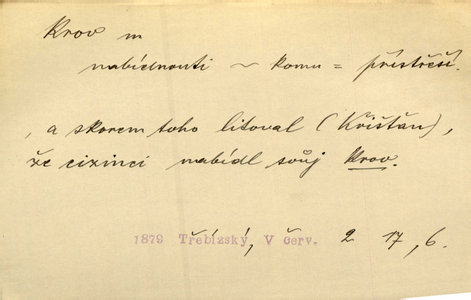 Krov m
nabídnouti ~ komu = přístřeší.
, a skorem toho litoval (Křišťan),
že cizinci nabídl svůj Krov.
1879 Třebízský, V červ. 2 17, 6.